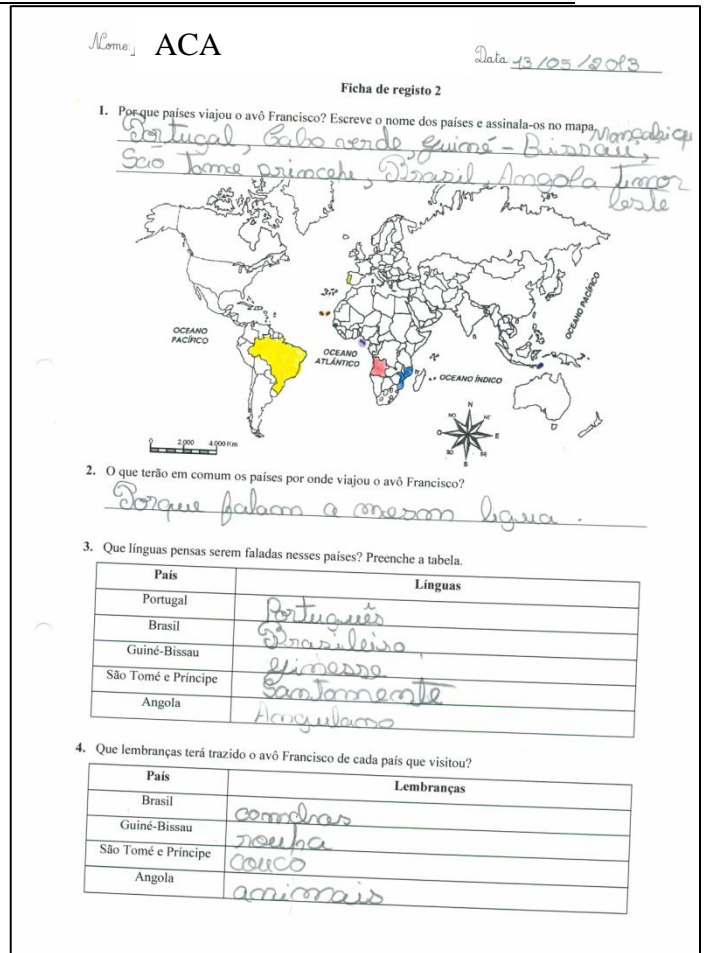 Nome: ACA
Data 13/05/2013
Ficha de registo 2
1. Por que países viajou o avô Francisco? Escreve o nome dos países e assinala-os no mapa.
Portugal, Cabo verde, Guiné-Bissau, Moçabique
São Tome princepe, Brasil, Angola timor
leste
OCEANO PACÍFICO
OCEANO ATLÂNTICO
OCEANO ÍNDICO
OCEANO PACÍFICO
N
NO NE
O E
SO SE
S
0 2.000 4.000 Km
2. O que terão em comum os países por onde viajou o avô Francisco?
Porque falam a mesm ligua.
3. Que línguas pensas serem faladas nesses países? Preenche a tabela.
País Línguas
Portugal Português
Brasil Brasileiro
Guiné-Bissau
São Tomé e Príncipe Santomente
Angola Angulano
4. Que lembranças terá trazido o avô Francisco de cada país que visitou?
País Lembranças
Brasil
Guiné-Bissau roupa
São Tomé e Príncipe couco
Angola animais